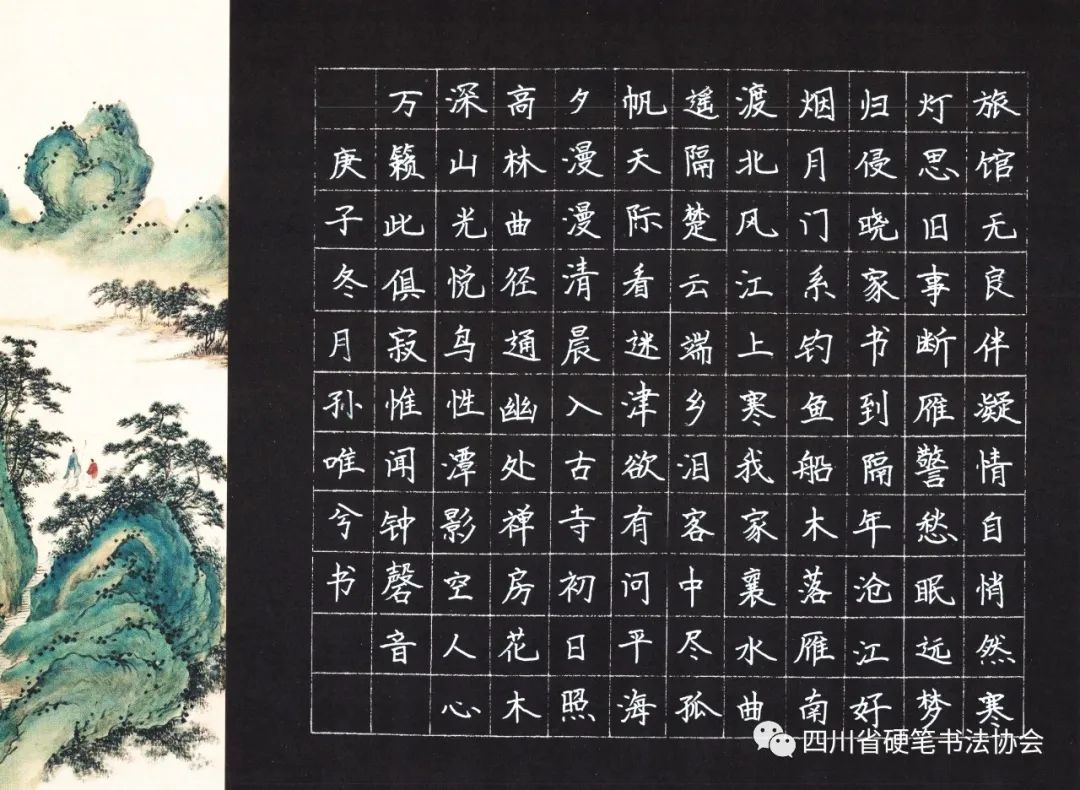 旅馆无良伴凝情自悄然寒
灯思旧事断雁警愁眠远梦
归侵晓家书到隔年沧江好
烟月门系钓鱼船木落雁南
渡北风江上寒我家襄水曲
遥隔楚云端乡泪客中尽孤
帆天际看迷津欲有问平海
夕漫漫清晨入古寺初日照
高林曲径通幽处禅房花木
深山光悦鸟性潭影空人心
万籁此俱寂惟闻钟磬音
庚子冬月孙唯兮书
四川省硬笔书法协会